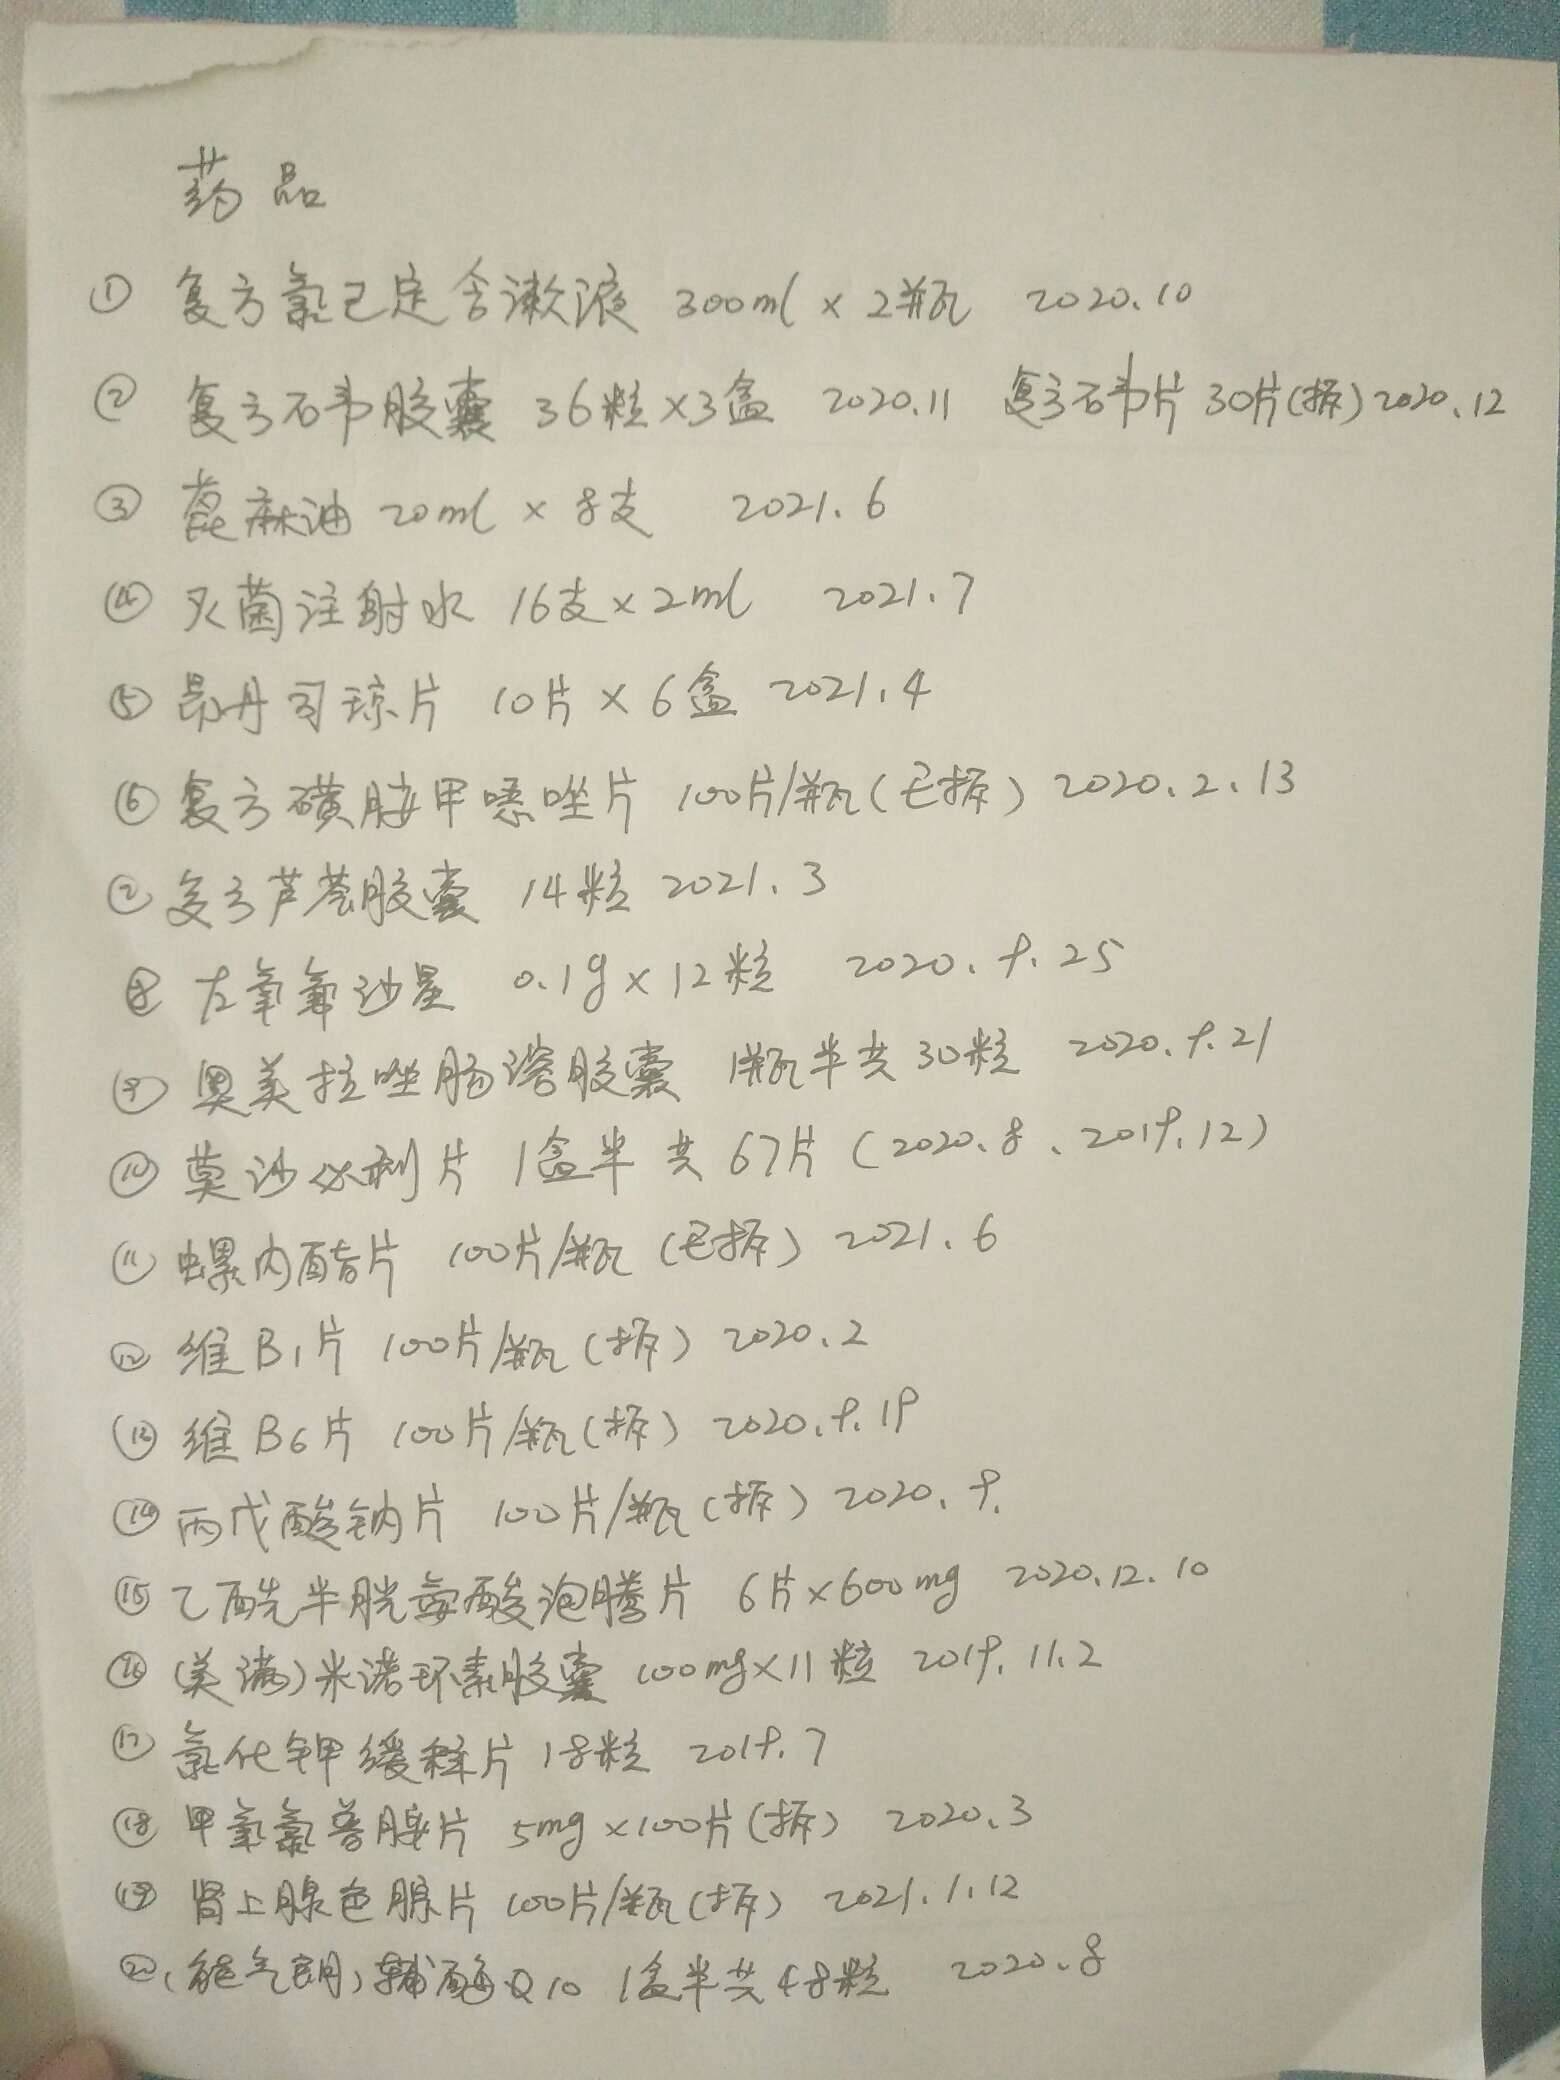 药品
① 复方氯己定含漱液 300ml × 2瓶 2020.10
② 复方石韦胶囊 36粒×3盒 2020.11 复方石韦片 30片(拆) 2020.12
③ 蓖麻油 20ml × 8支 2021.6
④ 灭菌注射水 16支×2ml 2021.7
⑤ 昂丹司琼片 10片×6盒 2021.4
⑥ 复方磺胺甲噁唑片 100片/瓶(已拆) 2020.2.13
⑦ 复方芦荟胶囊 14粒 2021.3
⑧ 左氧氟沙星 0.1g×12粒 2020.9.25
⑨ 奥美拉唑肠溶胶囊 1瓶半共30粒 2020.9.21
⑩ 莫沙必利片 1盒半 共67片 (2020.8、2019.12)
⑪ 螺内酯片 100片/瓶 (已拆) 2021.6
⑫ 维B1片 100片/瓶(拆) 2020.2
⑬ 维B6片 100片/瓶(拆) 2020.9.19
⑭ 丙戊酸钠片 100片/瓶(拆) 2020.9.
⑮ 乙酰半胱氨酸泡腾片 6片×600mg 2020.12.10
⑯ (美满)米诺环素胶囊 100mg×11粒 2019.11.2
⑰ 氯化钾缓释片 18粒 2019.7
⑱ 甲氧氯普胺片 5mg×100片(拆) 2020.3
⑲ 肾上腺色腙片 100片/瓶(拆) 2021.1.12
⑳ (能气朗)辅酶Q10 1盒半共48粒 2020.8